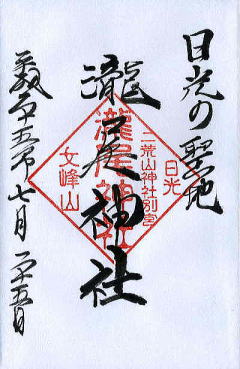 日光の聖地
瀧尾神社
平成二十五年七月二十五日
日光
二荒山神社別宮
瀧尾神社
女峰山